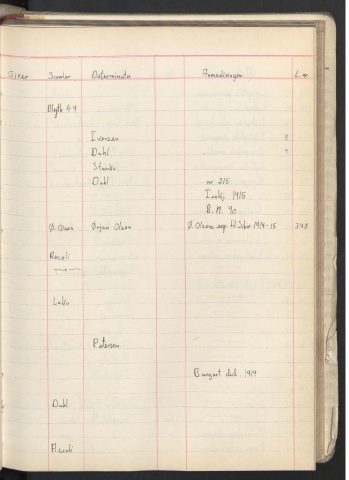 Giver Samler Determinator Anmerkninger L. nr.
Blytt 49
Iversen
Dahl
Dahl nr. 215
Innkj. 1915
B. M. 90
Ø. Olsen Ørjan Olsen Ø. Olsens exp. til Sibir 1914-15 343
Ascoli
Petersen
Bangert ded. 1919
Dahl
Ascoli